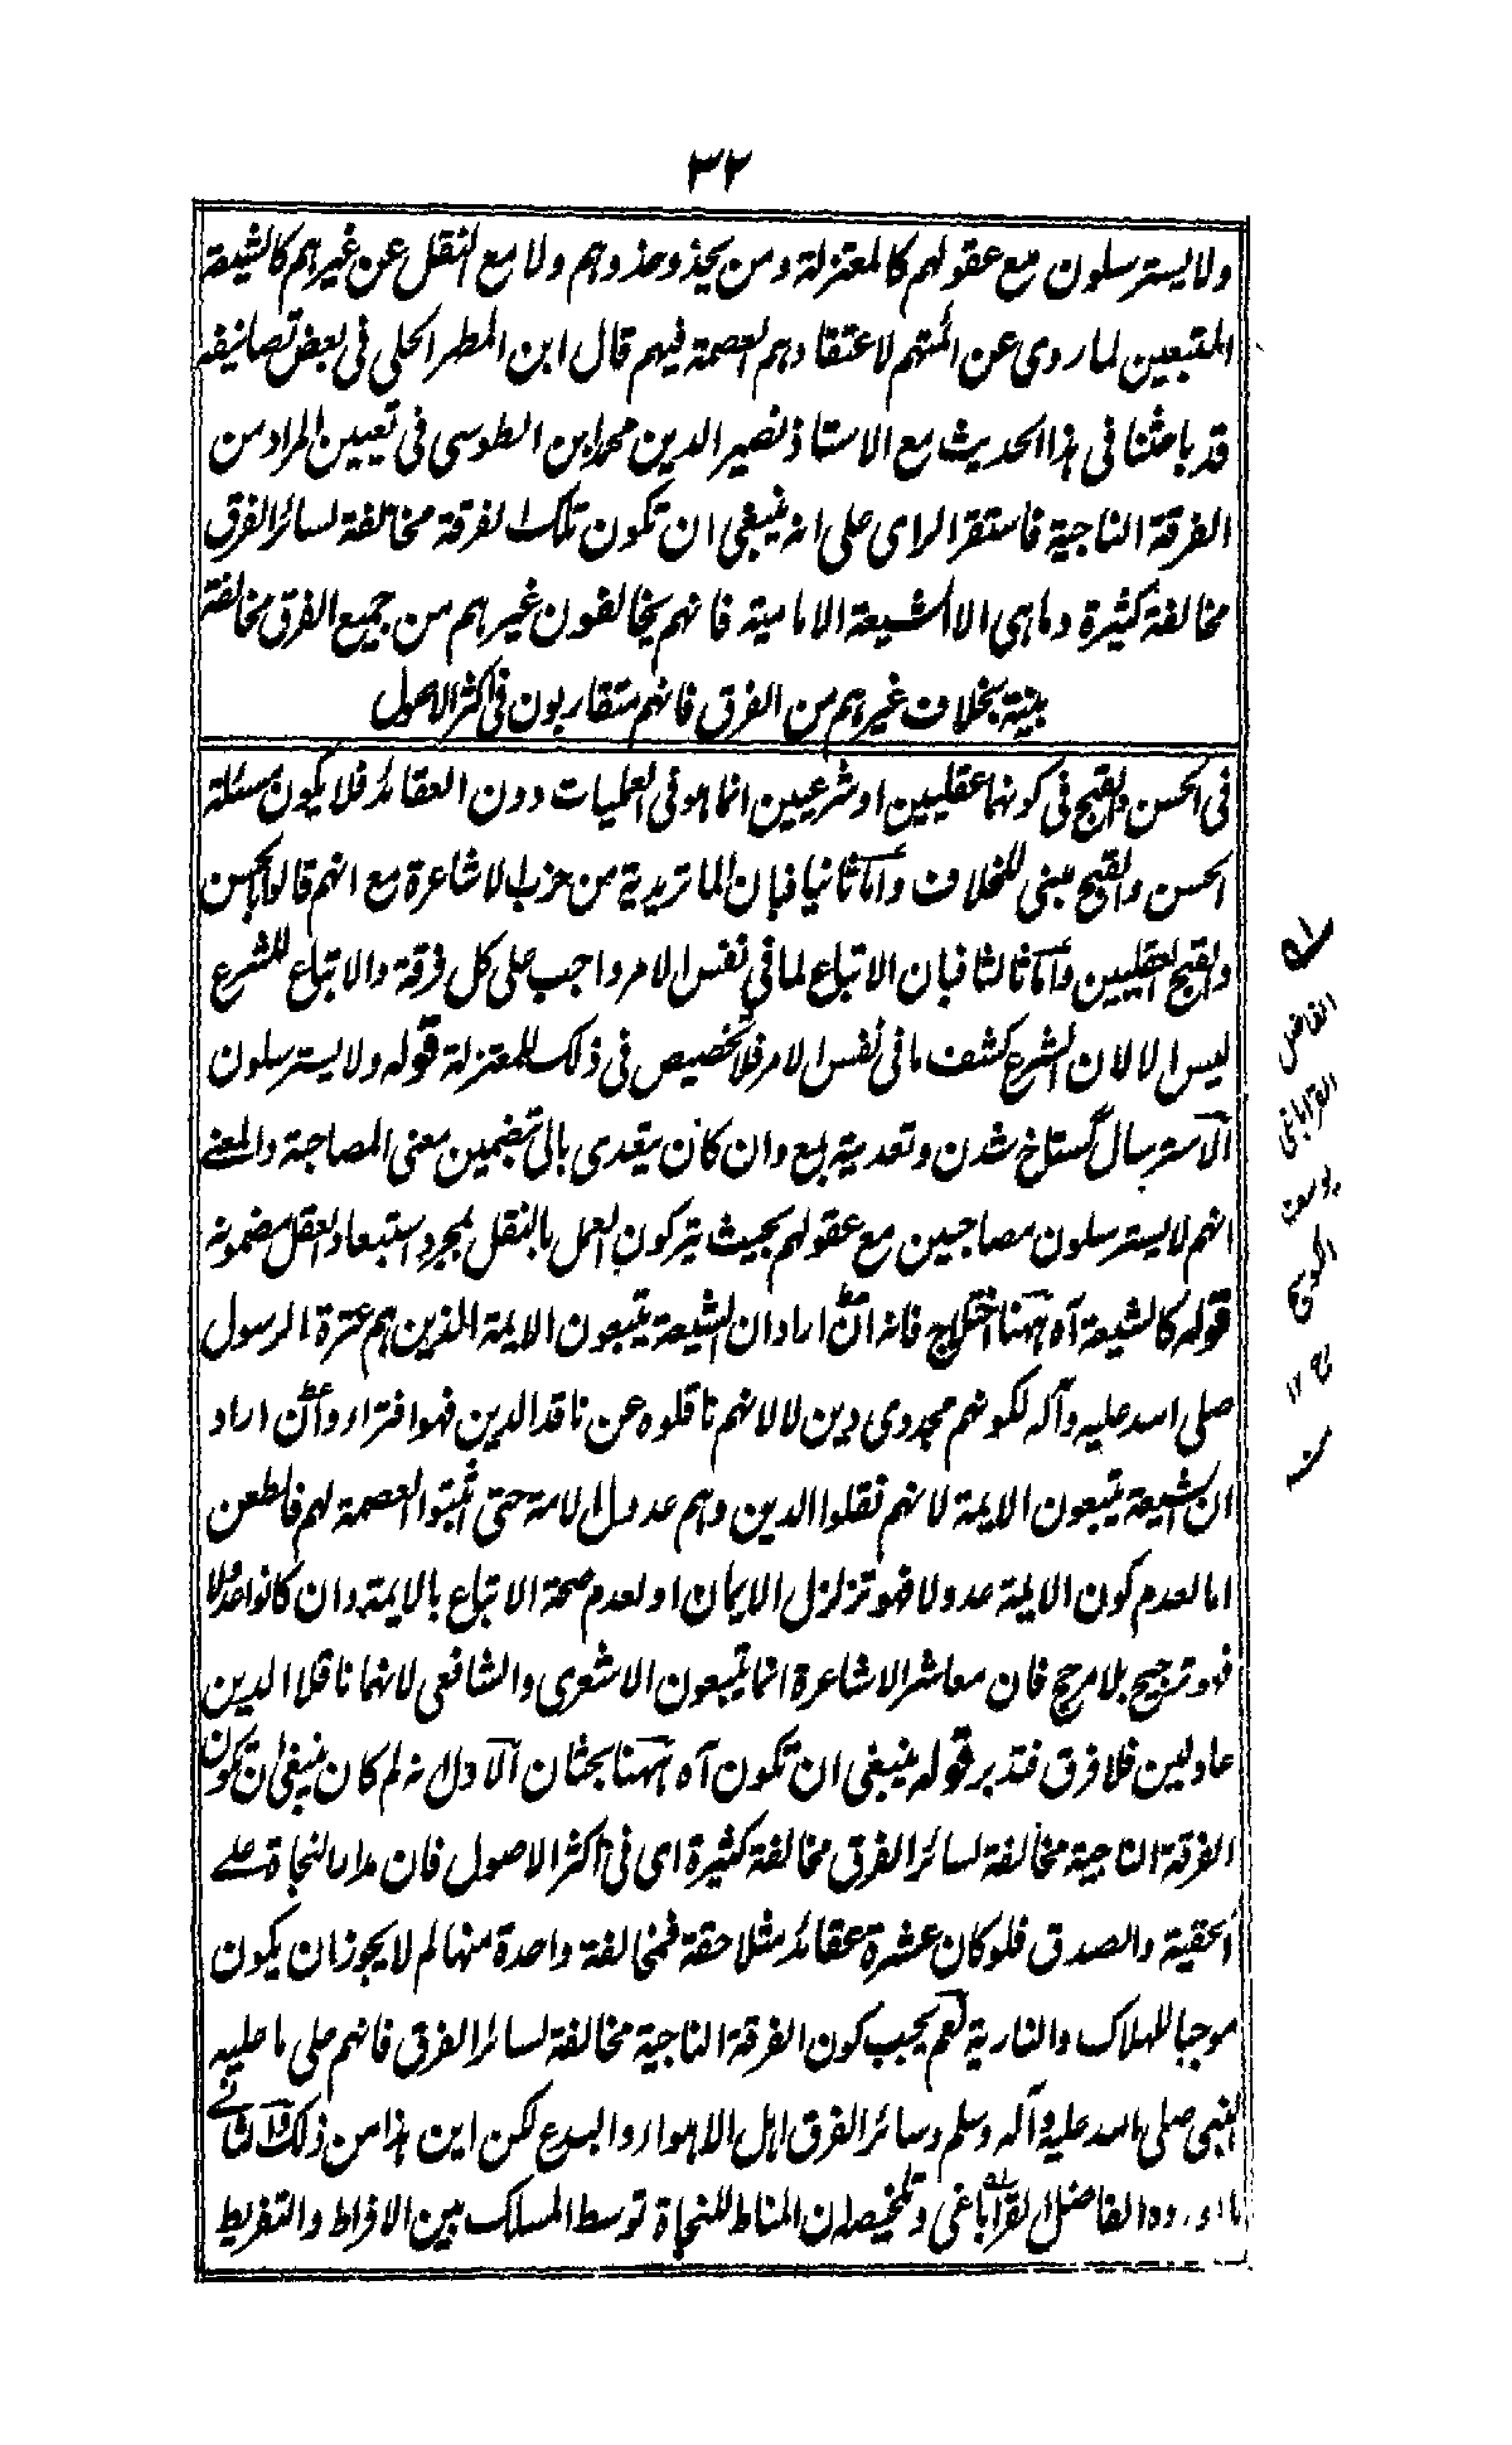 ٣٢
ولا يسترسلون مع عقولهم كالمعتزلة ومن يحذو حذوهم ولا مع النقل عن غيرهم كالشيعة
المتبعين لما روى عن ائمتهم لاعتقادهم العصمة فيهم قال ابن المطهر الحلى فى بعض تصانيفه
قد باحثنا فى هذا الحديث مع الاستاذ نصير الدين محمد ابن الطوسى فى تعيين المراد من
الفرقة الناجية فاستقر الراى على انه ينبغى ان تكون تلك الفرقة مخالفة لسائر الفرق
مخالفة كثيرة وماهى الا الشيعة الامامية فانهم يخالفون غيرهم من جميع الفرق مخالفة
بينة بخلاف غيرهم من الفرق فانهم متقاربون فى اكثر الاصول
فى الحسن والقبح فى كونهما عقليين او شرعيين انما هو فى العمليات دون العقائد فلا يكون مسئلة
الحسن والقبح مبنى للخلاف واما ثانيا فبان الماتريدية من حزب الاشاعرة مع انهم قالوا بالحسن
والقبح العقليين واما ثالثا فبان الاتباع لما فى نفس الامر واجب على كل فرقة والاتباع للشرع
ليس الا لان الشرع كشف ما فى نفس الامر فلا تخصيص فى ذلك للمعتزلة قوله ولا يسترسلون
الاسترسال گستاخ شدن وتعديته بمع وان كان يتعدى بالى بتضمين معنى المصاحبة والمعنے
انهم لا يسترسلون مصاحبين مع عقولهم بحيث يتركون العمل بالنقل بمجرد استبعاد العقل مضمونه
قوله كالشيعة آه ههنا اختلاج فانه ان اراد ان الشيعة يتبعون الايمة الذين هم عترة الرسول
صلى الله عليه وآله لكونهم مجددى دين لا لانهم ناقلوه عن ناقد الدين فهو افتراء وان اراد
ان الشيعة يتبعون الايمة لانهم نقلوا الدين وهم عدول الامة حتى اثبتوا العصمة لهم فالطعن
اما لعدم كون الايمة عدولا فهو تزلزل الايمان او لعدم صحة الاتباع بالايمة وان كانوا عدولا
فهو ترجيح بلا مرجح فان معاشر الاشاعرة انما يتبعون الاشعرى والشافعى لانهما ناقلا الدين
عادلين فلا فرق فتدبر قوله ينبغى ان تكون آه ههنا بحثان الاول انه لم كان ينبغى ان تكون
الفرقة الناجية مخالفة لسائر الفرق مخالفة كثيرة اى فى اكثر الاصول فان مدار النجاة علے
الحقية والصدق فلو كان عشرة عقائد مثلا حقة فمخالفة واحدة منها لم لا يجوز ان يكون
موجبا للهلاك والنارية نعم يجب كون الفرقة الناجية مخالفة لسائر الفرق فانهم على ما عليه
النبى صلى الله عليه وآله وسلم وسائر الفرق اهل الاهواء والبدع لكن اين هذا من ذلك والثانے
ما اورده الفاضل القراباغى وتلخيصه ان المناط للنجاة توسط المسلك بين الافراط والتفريط
له
الفاضل
القراباغى
يوسف
الكوسج
١٢
منه